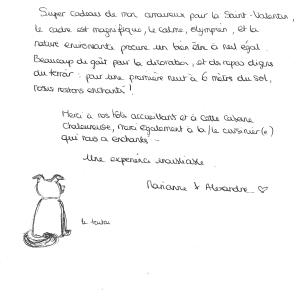 Super cadeau de mon amoureux pour la Saint-Valentin,
le cadre est magnifique, le calme, olympien, et la
nature environnante procure un bien être à nul égal.
Beaucoup de goût pour la décoration, et des repas dignes
du terroir : pour une première nuit à 6 mètres du sol,
nous restons enchantés !
Merci à nos hôtes accueillants et à cette cabane
chaleureuse, merci également à la/le cuisinier(e)
qui nous a enchantés -
Une expérience inoubliable.
Marianne & Alexandre ♡
le toutou